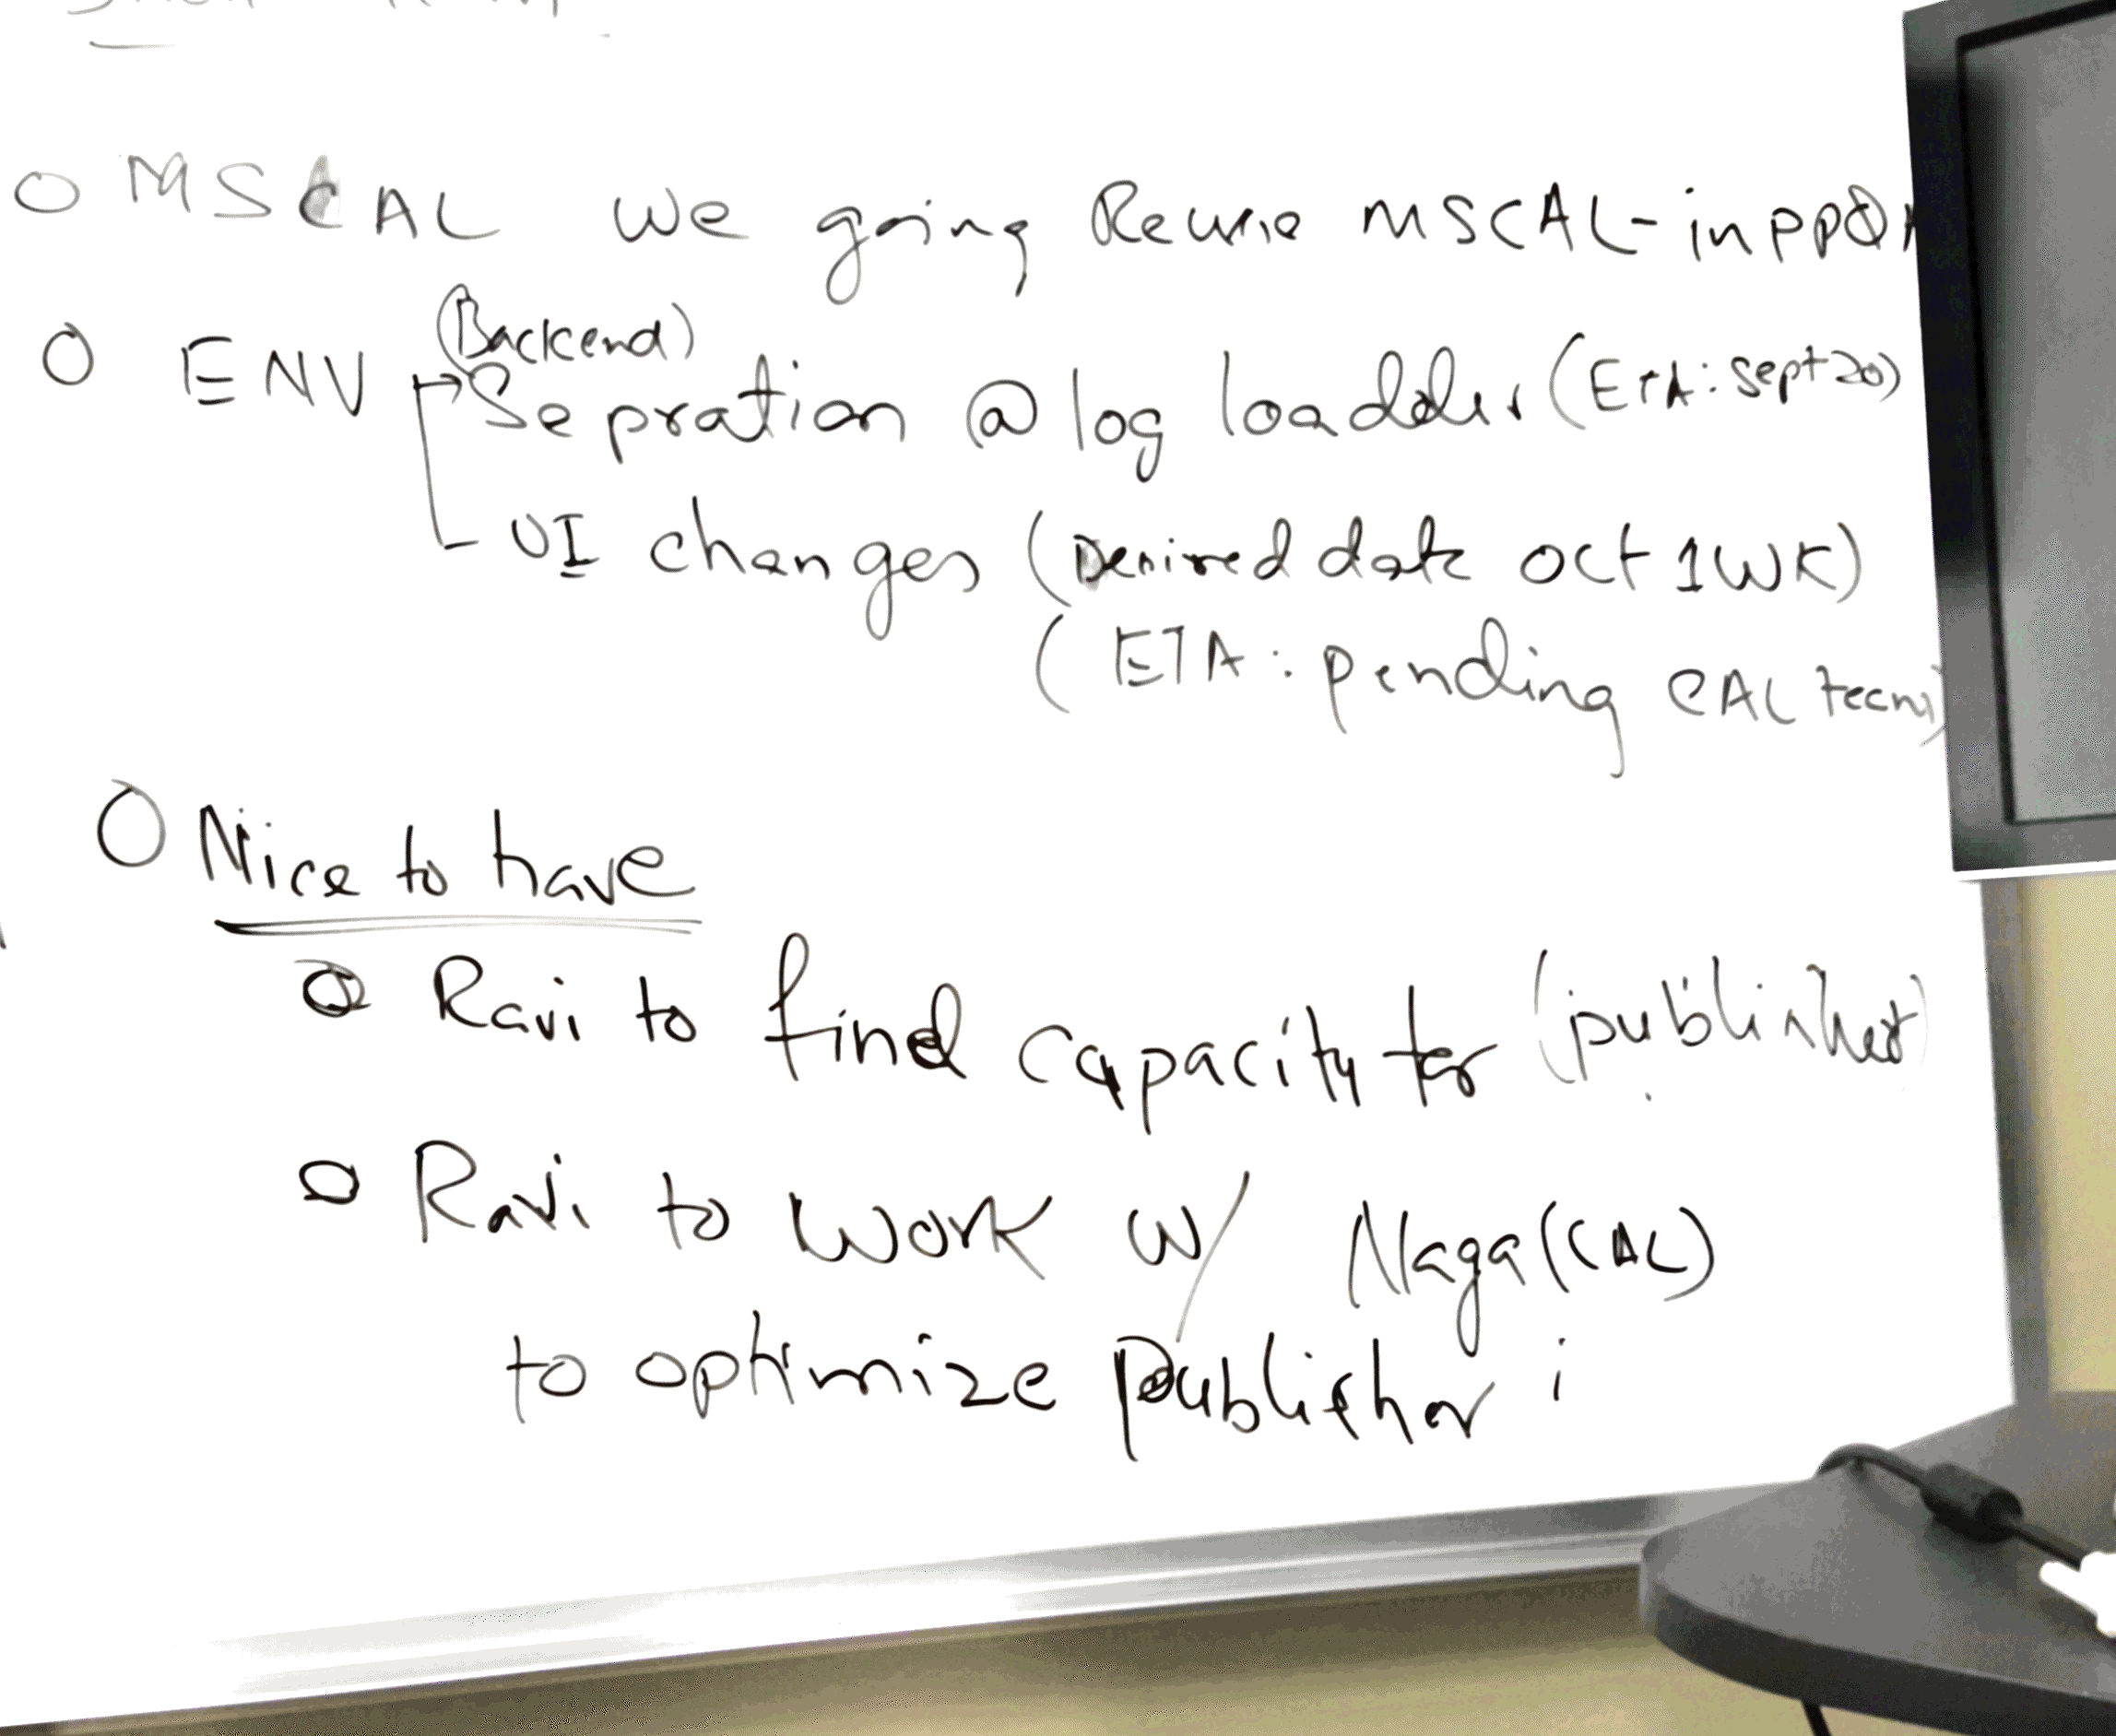 MSCAL We going Reuse MSCAL - in
ENV (Backend)
Sepration @ log loadder (ETA: Sept 20)
UI changes (Desired date Oct 1 WK)
(ETA: pending CAL team)
Nice to have
Ravi to find capacity for (publisher)
Ravi to Work w/ Naga (CAL)
to optimize Publisher